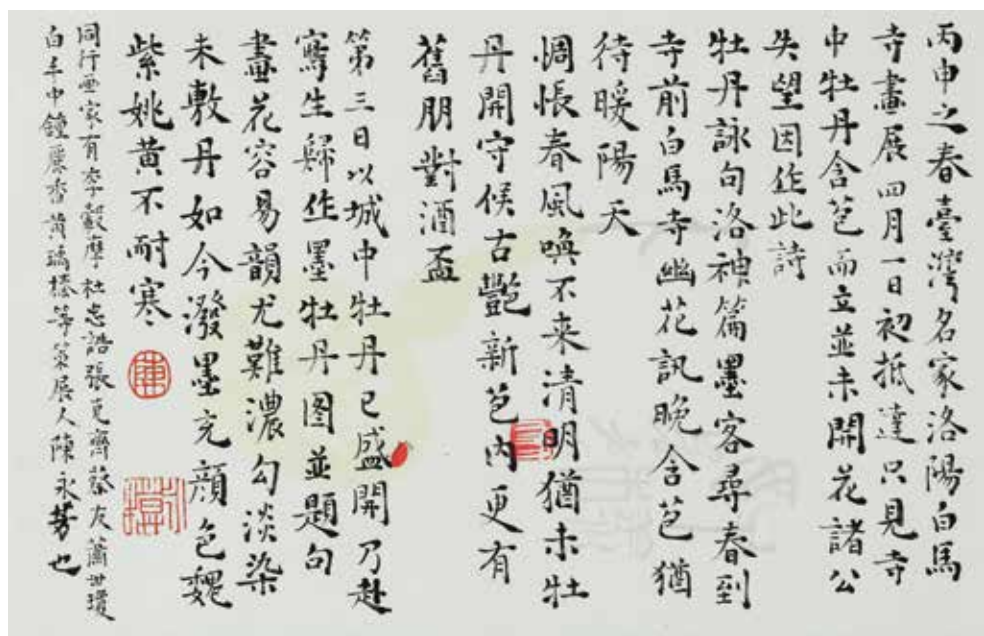 丙申之春臺灣名家洛陽白馬
寺畫展四月一日初抵達只見寺
中牡丹含苞而立並未開花諸公
失望因作此詩
牡丹詠句洛神篇墨客尋春到
寺前白馬寺幽花訊晚含苞猶
待暖陽天
惆悵春風喚不来清明猶未牡
丹開守候古艷新苞內更有
舊朋對酒盃
第三日以城中牡丹已盛開乃赴
寫生歸作墨牡丹图並題句
畫花容易韻尤難濃勾淡染
未敷丹如今潑墨充顔色魏
紫姚黃不耐寒
同行畫家有李轂摩杜忠誥張克齊蔡友蕭世瓊
白丰中鐘壽香黃瑀等策展人陳永芳也